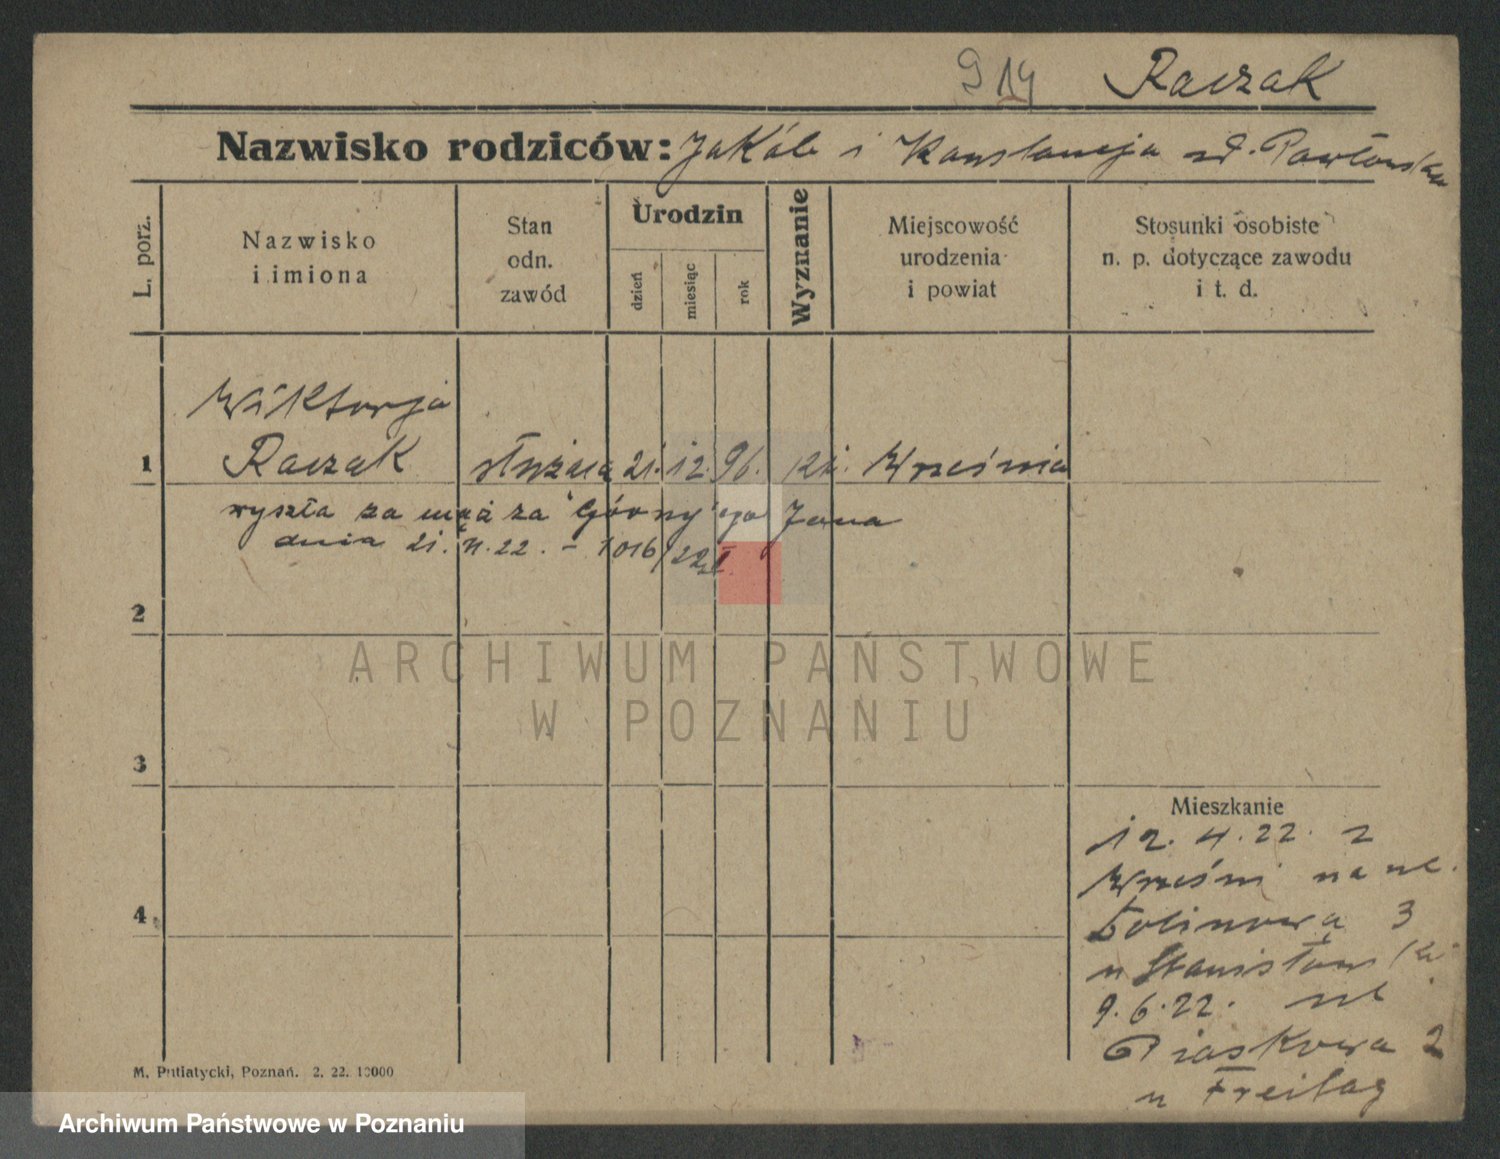 914 Raczak
Nazwisko rodziców: Jakób i Konstancja zd. Pawłowska
L. porz.
Nazwisko
i imiona
Stan
odn.
zawód
Urodzin
dzień
miesiąc
rok
Wyznanie
Miejscowość
urodzenia
i powiat
Stosunki osobiste
n. p. dotyczące zawodu
i t. d.
Wiktorja
1 Raczak służąca 21. 12. 96. kat. Września
wyszła za mąż za Górny'ego Jana
dnia 21. 22. – 1016/22
2
ARCHIWUM PAŃSTWOWE
W POZNANIU
3
Mieszkanie
12. 4. 22. z
Wrześni na ul.
3
4
u Stanisławski
9. 6. 22. ul
Piaskowa 2
u Freitag
M. Putiatycki, Poznań. 2. 22. 10000
Archiwum Państwowe w Poznaniu